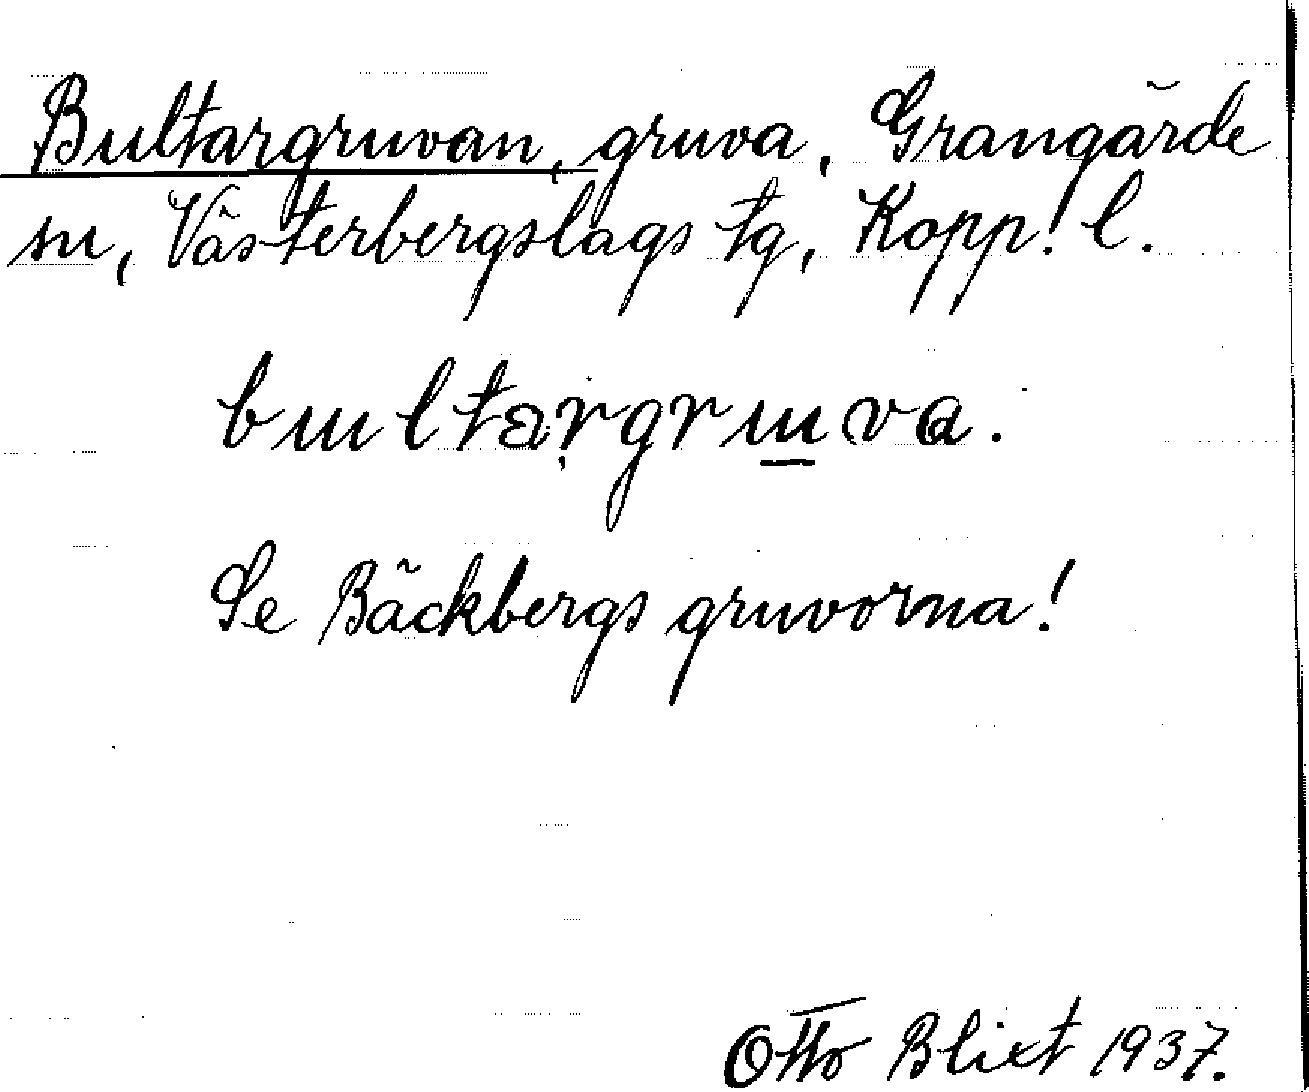 Bultargruvan, gruva, Grangärde
sn, Västerbergslags tg, Kopp! l.
bultargruva.
Se Bäckbergsgruvorna!
Otto Blixt 1937.